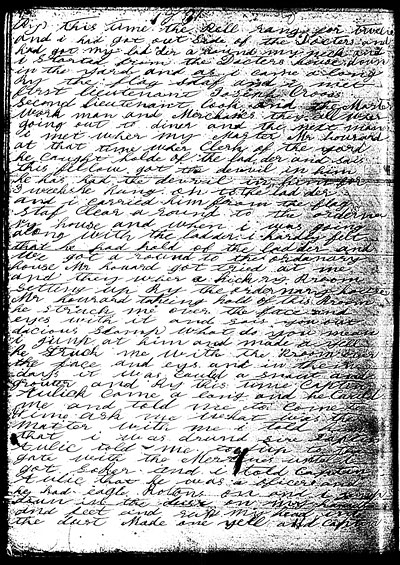 By this time the Bell rang for twelve
and i had got out side of the Docters and
had got my ladder a round my neck and
i started from the Docters house down
in the yard and as i came along
by the flag staff and i met
first lieutenant Joseph Cross
second lieutenant look and the Master
work man and Merchanks then all was
going out to diner and the next man
i met wher my Master Mr Howard
at that time wher Clerk of the yard
he caught holde of the ladder and said
this fellow got the devvil in him
i has had the devvil in him for
3 weeke hung on to the ladder
and i carried him from the flag
staf clear a round to the ordernary
house and when i was going
along with the ladder i hardly felt
that he had hold of the ladder and
We got a round to the ordanary
house Mr houard got tried at me
and ther wher a hickry Broom
setting up by the ordernary house
Mr houard takeing hold of this Broom
he struck me over the face and
eyes with it and says you
dacious Scamp What do you mean
i jump at him and made a yell
he struck me with the Broom over
the face and eys and in the
days it was could a smart
grouth and By this time Captin
Aulick Came a long and he Could
me and told me to Come to
him ask me what was the
matter with me i told him
that i was drund sir Captin
Aulic told me to up and
got with the Mer
got Soker and i told Captain
Aulic that he was a oficer and
he had eagle Botons on and i
down in the dust on my hands
and feet and rub my head in
the dust Made one yell and Capt